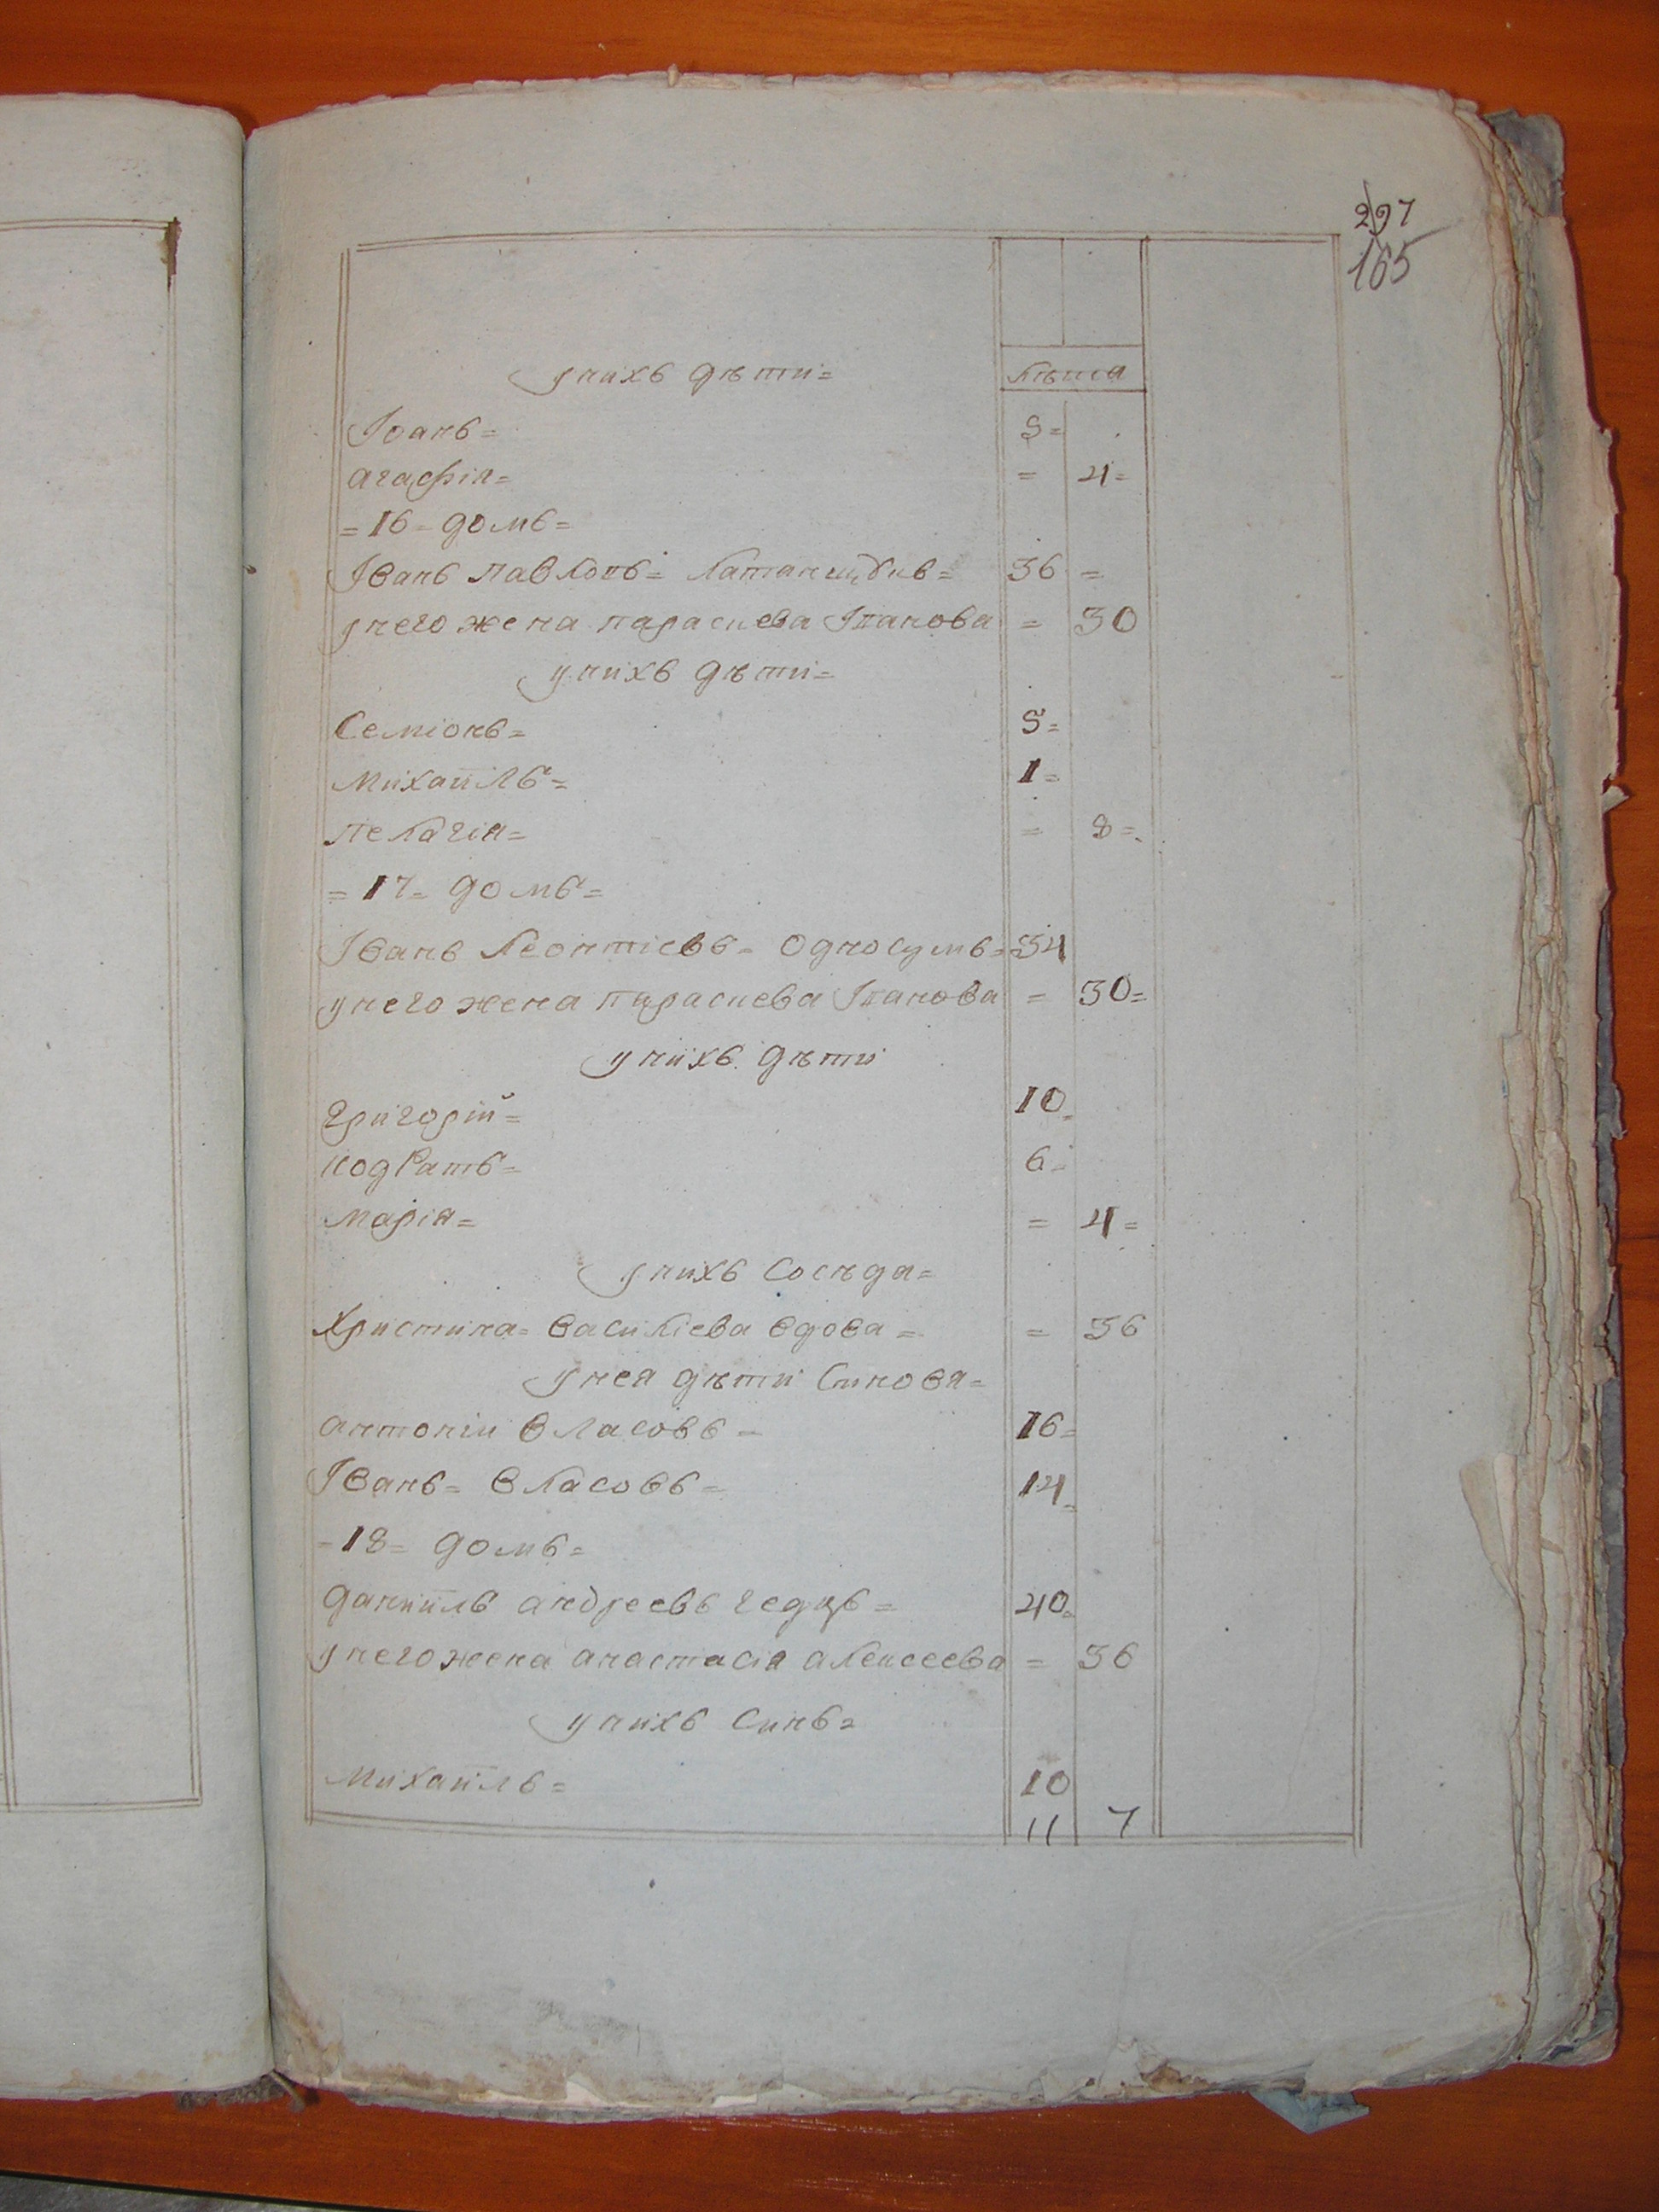 297
165
унихъ дѣти=
лѣта
Іоанъ= 5=
агафія= = 4=
=16= домъ=
Іванъ павловъ= 36 =
унего жена параскева Іванова = 30
унихъ дѣти=
Семіонъ= 5=
михаилъ= 1=
пелагія= = 8=
=17= домъ=
Іванъ леонтіевъ= Односумъ= 34
унего жена параскева Іванова = 30=
унихъ дѣти
григорій= 10=
кодратъ= 6=
марія= = 4=
унихъ Сосѣда=
Христина= василіева вдова= = 36
унея дѣти Синовя=
антоніи власовъ= 16=
Іванъ= власовъ= 14=
=18= домъ=
даниилъ андреевъ 40=
унего жена анастасія алексеева = 36
унихъ Синъ=
михаилъ= 10
11 7